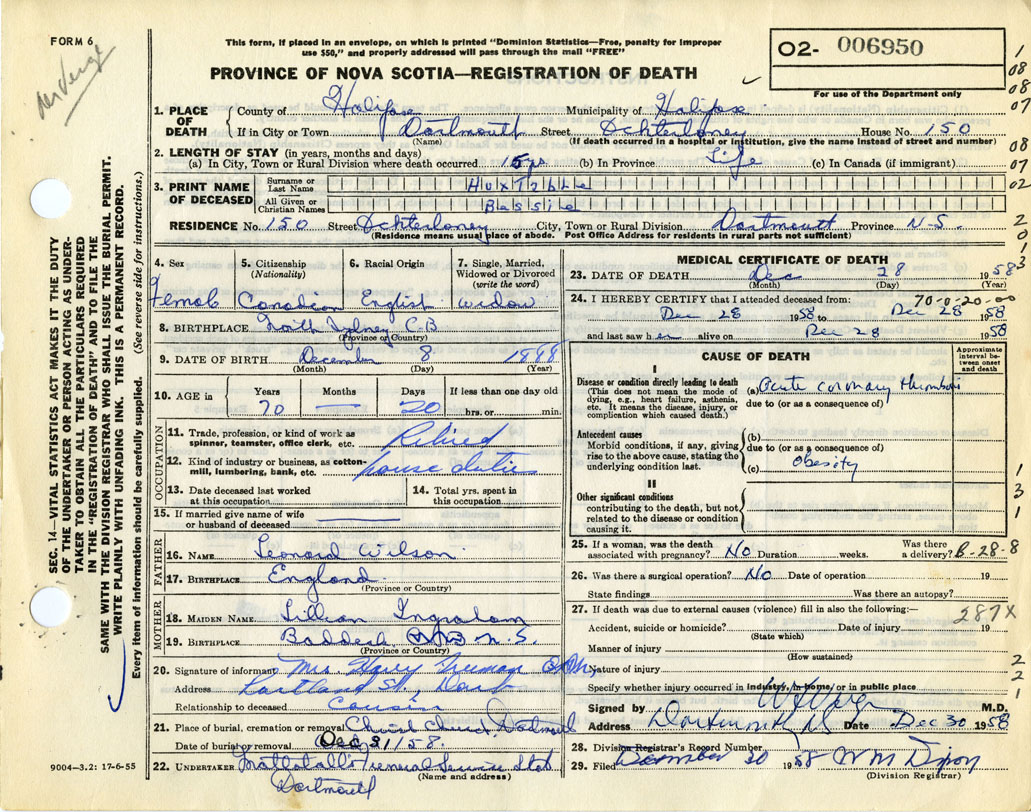 FORM 6
This form, if placed in an envelope, on which is printed "Dominion Statistics—Free, penalty for improper
use $50," and properly addressed will pass through the mail "FREE"
O2- 006950
For use of the Department only
PROVINCE OF NOVA SCOTIA—REGISTRATION OF DEATH
1. PLACE OF DEATH County of Halifax Municipality of Halifax
If in City or Town Dartmouth Street Ochterloney House No. 150
(Name) (If death occurred in a hospital or institution, give the name instead of street and number)
2. LENGTH OF STAY (in years, months and days)
(a) In City, Town or Rural Division where death occurred 15 yrs (b) In Province Life (c) In Canada (if immigrant)
3. PRINT NAME OF DECEASED Surname or Last Name HUXTABLE
All Given or Christian Names BESSIE
RESIDENCE No. 150 Street Ochterloney City, Town or Rural Division Dartmouth Province N-S.
(Residence means usual place of abode. Post Office Address for residents in rural parts not sufficient)
4. Sex 5. Citizenship (Nationality) 6. Racial Origin 7. Single, Married, Widowed or Divorced (write the word)
Female Canadian English widow
8. BIRTHPLACE North Sydney C.B
(Province or Country)
9. DATE OF BIRTH December 8 1888
(Month) (Day) (Year)
10. AGE in Years Months Days If less than one day old
70 — 20 hrs. or min.
OCCUPATION
11. Trade, profession, or kind of work as spinner, teamster, office clerk, etc. Retired
12. Kind of industry or business, as cotton-mill, lumbering, bank, etc. house duties
13. Date deceased last worked at this occupation
14. Total yrs. spent in this occupation
15. If married give name of wife or husband of deceased
FATHER
16. NAME Leonard Wilson
17. BIRTHPLACE England
(Province or Country)
MOTHER
18. MAIDEN NAME Lillian Ingraham
19. BIRTHPLACE Baddeck N.S.
(Province or Country)
20. Signature of informant Mrs. Harry Truman
Address Portland St., Dart
Relationship to deceased Cousin
21. Place of burial, cremation or removal Christ Church Dartmouth
Date of burial or removal Dec 31/58.
22. UNDERTAKER Mattatall's Funeral Service
(Name and address)
Dartmouth
9004—3.2: 17-6-55
MEDICAL CERTIFICATE OF DEATH
23. DATE OF DEATH Dec 28 1958
(Month) (Day) (Year)
24. I HEREBY CERTIFY that I attended deceased from: 70-0-20-00
Dec 28 1958 to Dec 28 1958
and last saw her alive on Dec 28 1958
CAUSE OF DEATH
Approximate interval between onset and death
I
Disease or condition directly leading to death
(This does not mean the mode of dying, e.g., heart failure, asthenia, etc. It means the disease, injury, or complication which caused death.)
(a) Acute coronary thrombosis
due to (or as a consequence of)
Antecedent causes
Morbid conditions, if any, giving rise to the above cause, stating the underlying condition last.
(b)
due to (or as a consequence of)
(c) Obesity
II
Other significant conditions
contributing to the death, but not related to the disease or condition causing it.
25. If a woman, was the death associated with pregnancy? No Duration weeks. Was there a delivery? B-28-8
26. Was there a surgical operation? No Date of operation 19
State findings Was there an autopsy?
27. If death was due to external causes (violence) fill in also the following:— 287X
Accident, suicide or homicide? Date of injury 19
(State which)
Manner of injury
(How sustained)
Nature of injury
Specify whether injury occurred in industry, in home, or in public place
Signed by M.D.
Address Dartmouth NS Date Dec 30 1958
28. Division Registrar's Record Number
29. Filed December 30 1958 WM Dixon
(Division Registrar)
SEC. 14—VITAL STATISTICS ACT MAKES IT THE DUTY
OF THE UNDERTAKER OR PERSON ACTING AS UNDER-
TAKER TO OBTAIN ALL THE PARTICULARS REQUIRED
IN THE "REGISTRATION OF DEATH" AND TO FILE THE
SAME WITH THE DIVISION REGISTRAR WHO SHALL ISSUE THE BURIAL PERMIT.
WRITE PLAINLY WITH UNFADING INK. THIS IS A PERMANENT RECORD.
Every item of information should be carefully supplied. (See reverse side for instructions.)
1
08
08
07
08
07
02
2
0
3
1
3
1
2
2
1